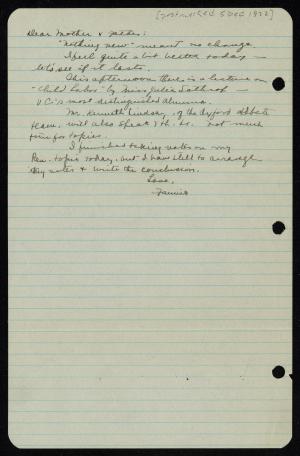 [postmarked 5 DEC 1922]
Dear Mother & Father:
"Nothing new" meant no change.
I feel quite a bit better today —
let's see if it lasts.
This afternoon there is a lecture on
"Child Labor" by Miss Julia Lathrop —
V.C.'s most distinguished Alumna.
Mr. Kenneth Lindsay, of the Oxford debate
team, will also speak Not much
time for topics.
I finished taking notes on my
Ren. topic today, but I have still to arrange
my notes & write the conclusion.
Love,
Fannie